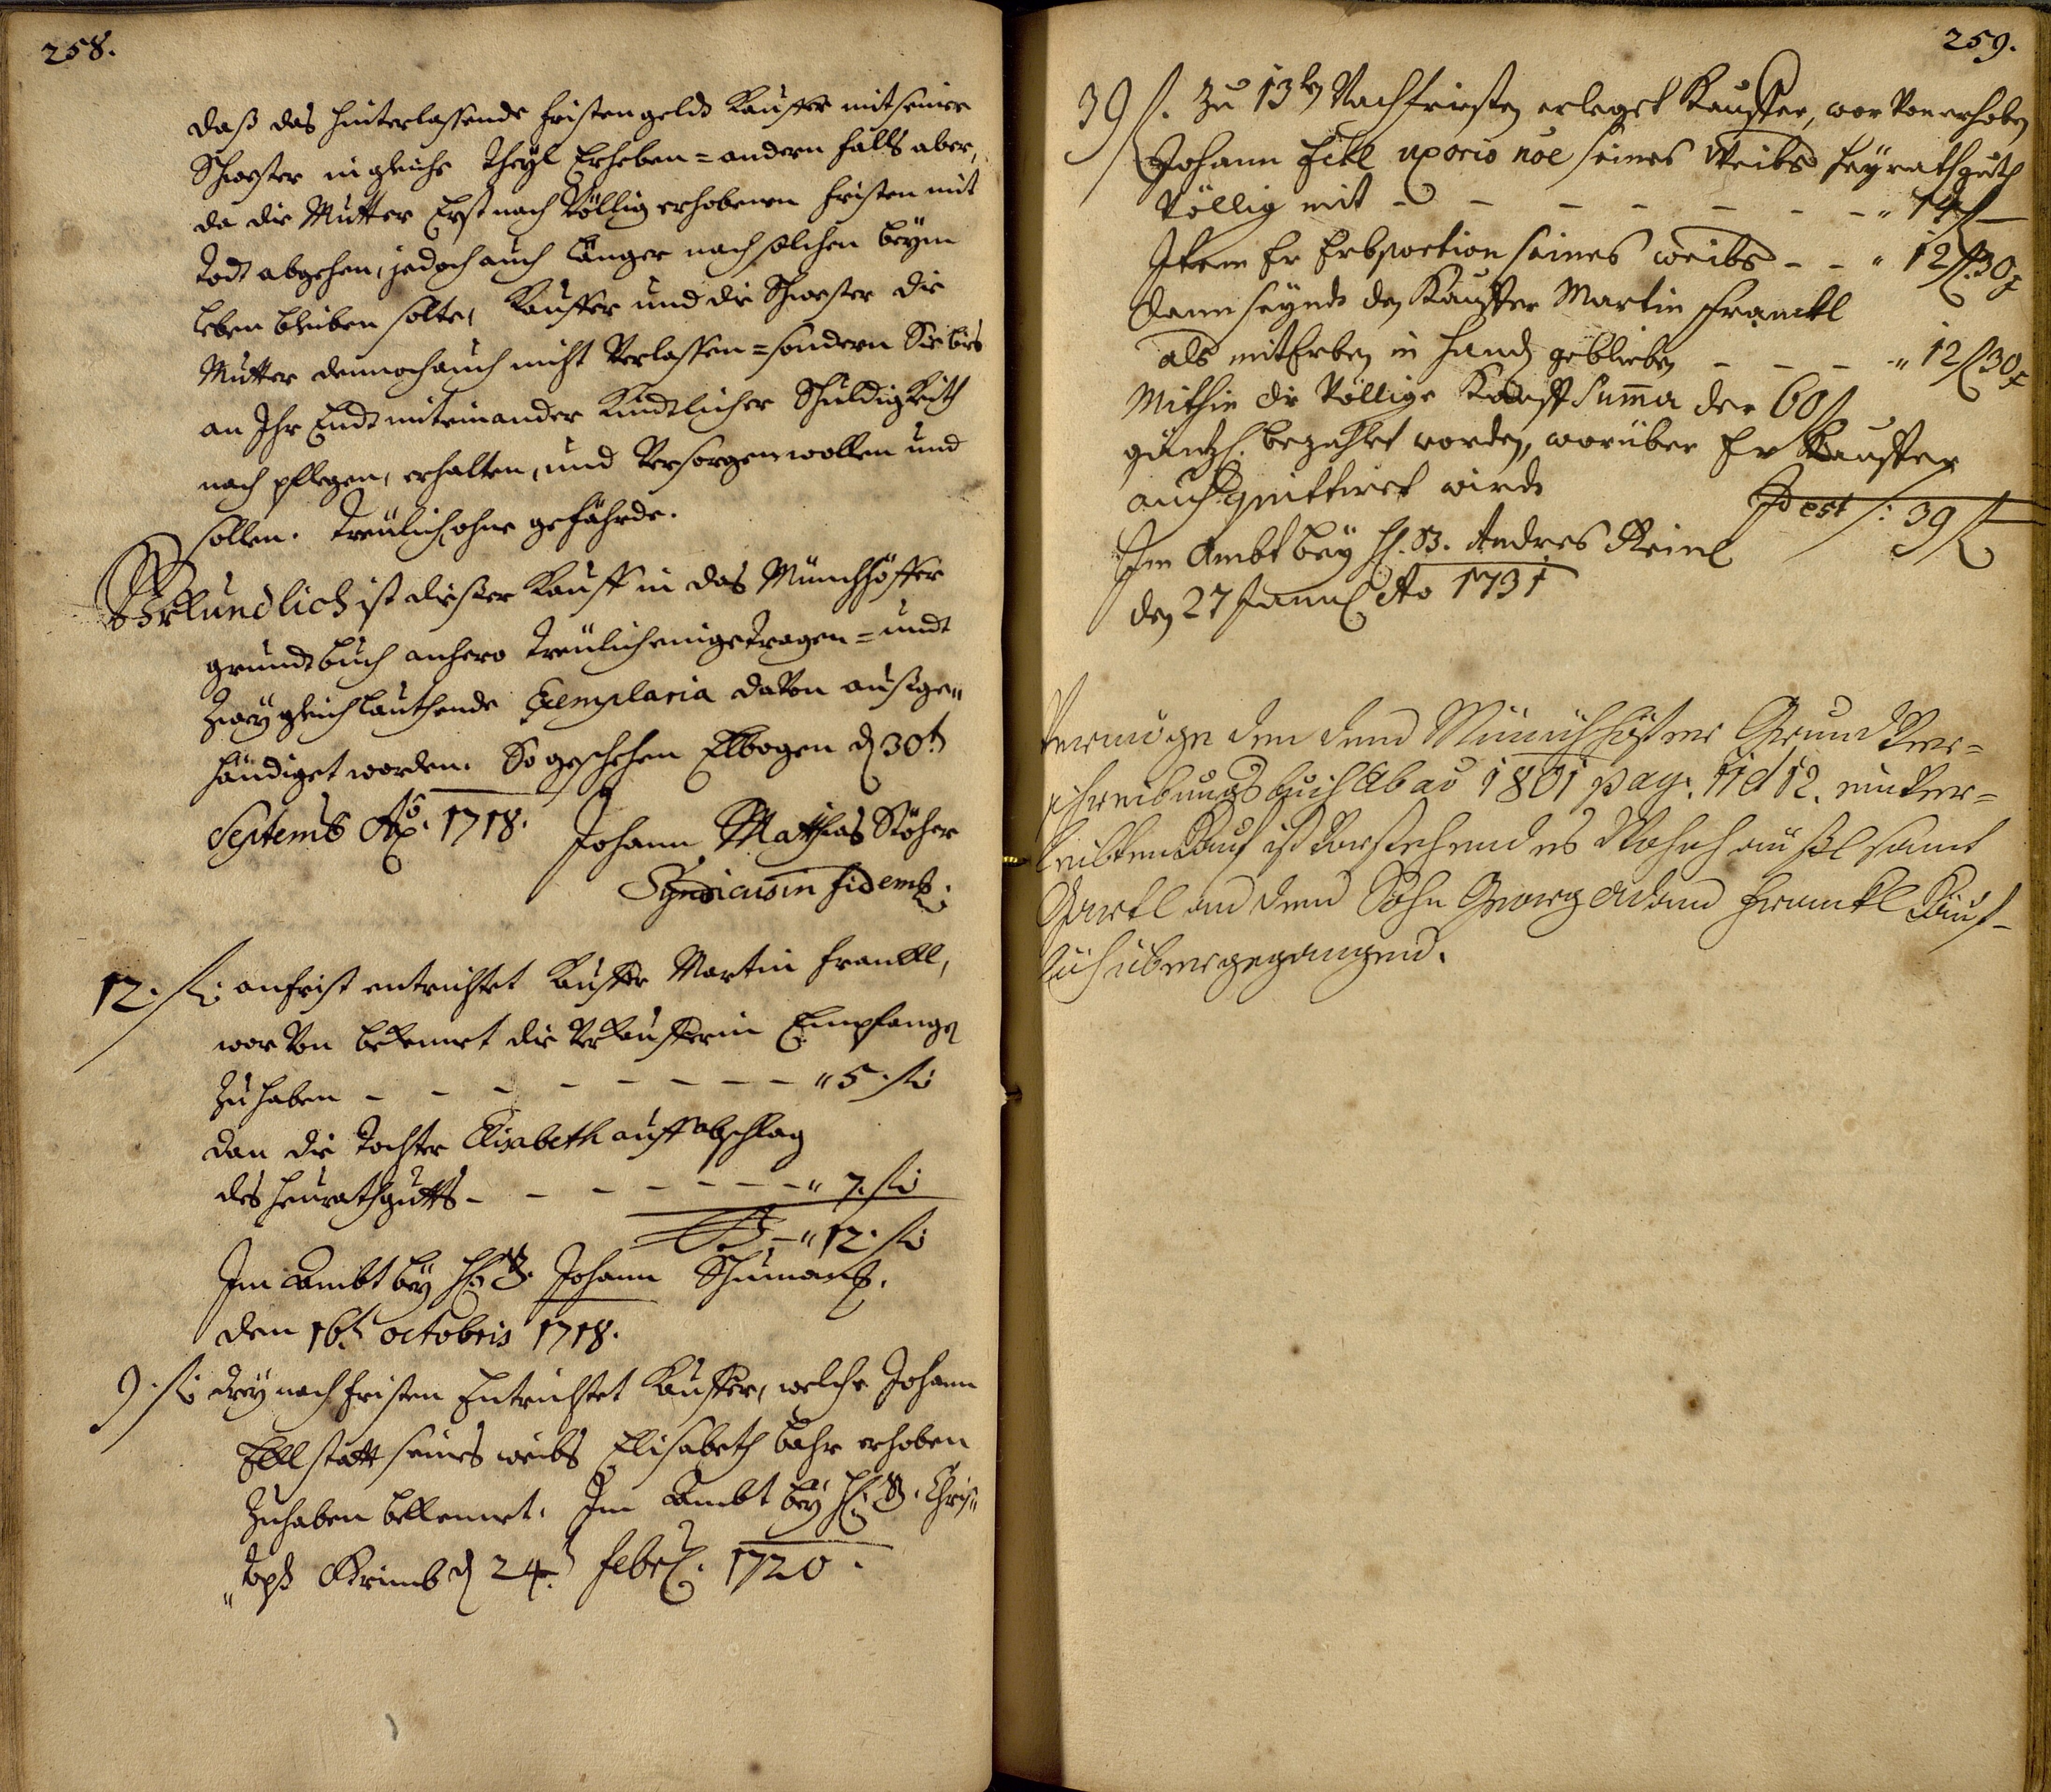 258.
daß das hinterlassende fristengeld Kauffer mit seiner
Schwester in gleiche Theyl Erheben = andern falls aber,
da die Mutter Erst nach Völlig erhobenen fristen mit
Todt abgehen, jedoch auch länger nach solchen beym
leben bleiben solte, Kauffer und die Schwester die
Mutter dennoch auch nicht Verlassen = sondern Sie bis
an Ihr Endt miteinander Kindtlicher Schuldigkeith
nach pflegen, erhalten, und Versorgen wollen und
sollen. Treülich ohne gefährde.
Uhrkundlich ist dießer Kauff in das Münchhöffer
grundtbuch anhero treülich eingetragen = undt
Zwey gleichlauthende Exemplaria davon außge„
händiget worden. So geschehen Elbogen d 30t
Septemb Ao. 1718. Johann Matthias Stöhr
Syndicus in fidem
12. f. anfrist entrichtet Kauffer Martin Franckl,
wor Von bekennet die Verkaufferin Empfangen
Zu haben - - - - - - - - „ 5. f.
dan die Tochter Elisabeth auff abschlag
des heurathgutts - - - - - - - „ 7. f.
„ 12. f.
Im Ambt bey H. B. Johann Schuman
den 16t. octobris 1718.
9. f. drey nach fristen Entrichtet Kauffer, welche Johann
Eckl statt seines weibs Elisabeth bahr erhoben
Zuhaben bekennet. Im Ambt bey H. B. Chris„
„toph d 24t. Febr. 1720.
259.
39 f. Zu 13 Nachfristen erleget Kauffer, wor Von erhoben
Johann Eckl uxorio noe seines Weibs heyrathguth
Völlig mit - - - - - - - „ 14 f
Item Er Erbportion seines weibs - - „ 12 f 30 x
dann seynd dem Kauffer Martin Franckl
als mit Erben in Handen geblieben - - - „ 12 f 30 x
Mithin die Völlige Kauff Summa der 60 f
gäntzl. bezahlet worden, worüber Er Kauffer
auch quittiret wirdt
Id est /: 39 f
Im Ambt bey H. B. Andres Reinl
den 27 Januar Ao 1731
Vermöge den dem Münichhöfner Grund Ver=
schreibungsbuch ab ao 1801 pag. 11 et 12. einver=
leibten Kauf ist Vorstehendes Wohnhäußl samt
Gartl an den Sohn Georg Adam Franckl Käuf-
lich übergegangen.